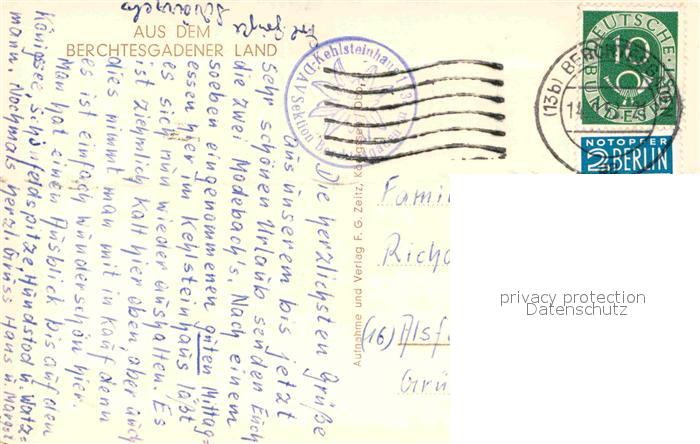 AUS DEM
BERCHTESGADENER LAND
Die herzlichsten Grüße
aus unserem bis jetzt
sehr schönen Urlaub senden Euch
die zwei Modebach's. Nach einem
soeben eingenommenen guten Mittag=
essen hier im Kehlsteinhaus läßt
es sich nun wieder aushalten. Es
ist ziehmlich kalt hier oben, aber auch
dies nimmt man mit in kauf denn
es ist einfach wunderschön hier.
Man hat einen Ausblick bis auf den
Königsee, Schönfeldspitze, Hundstod u. Watz=
mann. Nochmals herzl. Gruss Hans u. Margot
Kehlsteinhaus
AV Sektion
Aufnahme und Verlag F. G. Zeitz, Königssee / Obb.
DEUTSCHE
BUNDESPOST
10
(13b) BERCHTESGADEN
NOTOPFER
2 BERLIN
Famil
Richa
(16) Alsf
Grü
privacy protection
Datenschutz